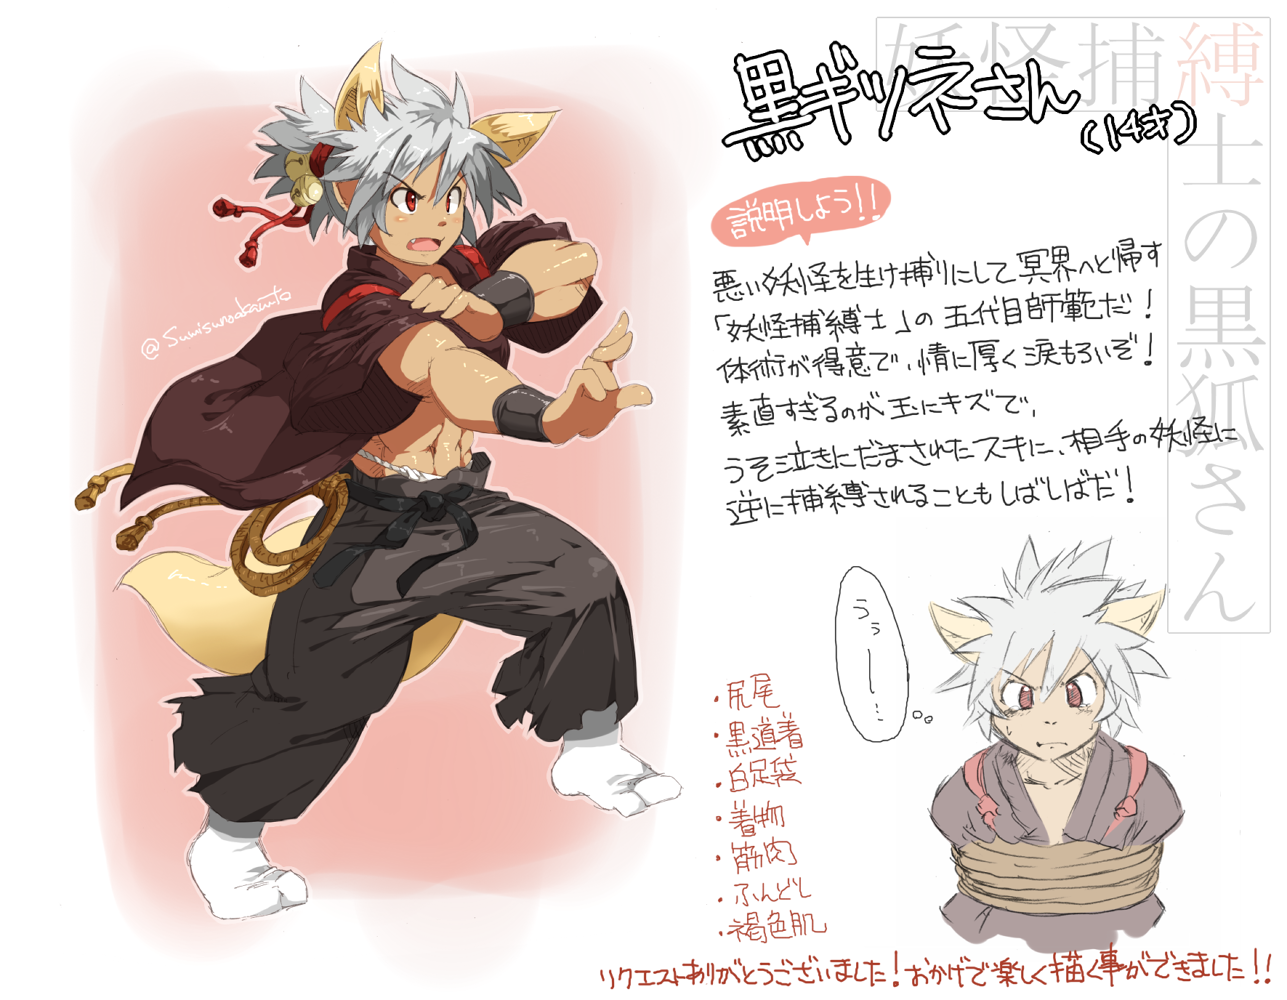 妖怪捕縛士の黒狐さん
黒ギツネさん
(14才)
説明しよう!!
悪い妖怪を生け捕りにして冥界へと帰す
「妖怪捕縛士」の五代目師範だ!
体術が得意で、情に厚く涙もろいぞ!
素直すぎるのが玉にキズで、
うそ泣きにだまされたスキに、相手の妖怪に
逆に捕縛されることもしばしばだ!
@Suwisunosakauto
うぅー…
・尻尾
・黒道着
・白足袋
・着物
・筋肉
・ふんどし
・褐色肌
リクエストありがとうございました!おかげで楽しく描く事ができました!!